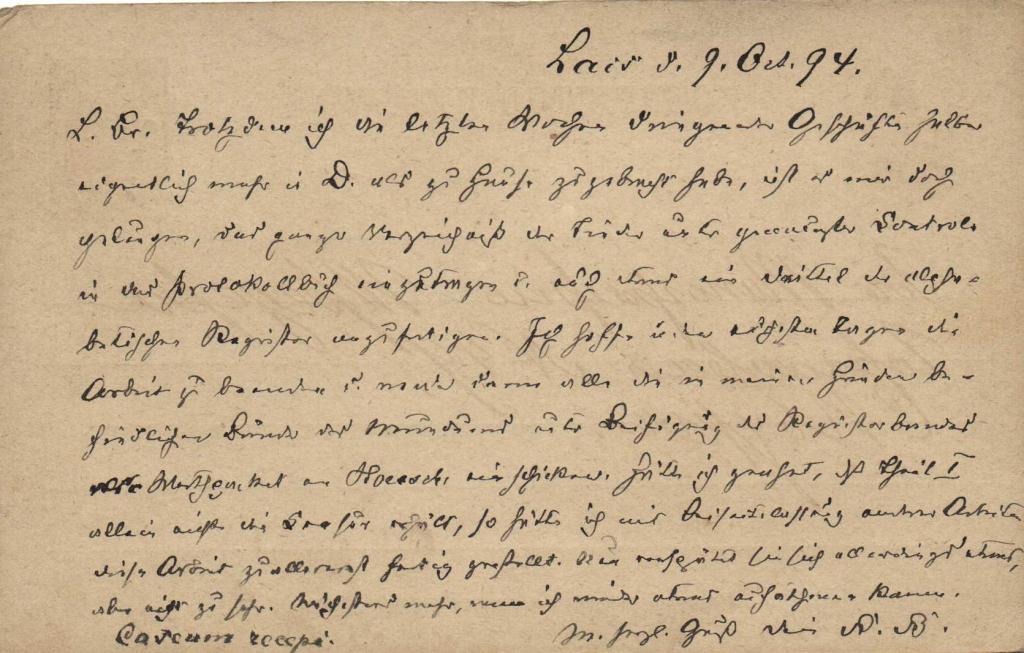 Lais d. 9. Oct. 94.
L. Br. Trotzdem ich die letzten Wochen dringender Geschäfte halber
eigentlich mehr in D. als zu Hause zugebracht habe, ist es mir doch
gelungen, das ganze Verzeichniß der Lieder unter genauester Controle
in das Protokollbuch einzutragen u. auch etwa ein Drittel des alpha-
betischen Registers anzufertigen. Ich hoffe in den nächsten Tagen die
Arbeit zu beenden u. werde dann alle die in meinen Händen be-
findlichen Bände des unter Beifügung des Registerbandes
als Werthpacket an einschicken. Hätte ich geahnt, daß Theil I
allein nicht die Censur erhält, so hätte ich mit Beiseitelassung anderer Arbeiten
diese Arbeit zuallererst fertig gestellt. Nun verspätet sie sich allerdings etwas,
aber nicht zu sehr. Nächstens mehr, wenn ich wieder etwas aufathmen kann.
Caseum recepi.
M. herzl. Gruß dein